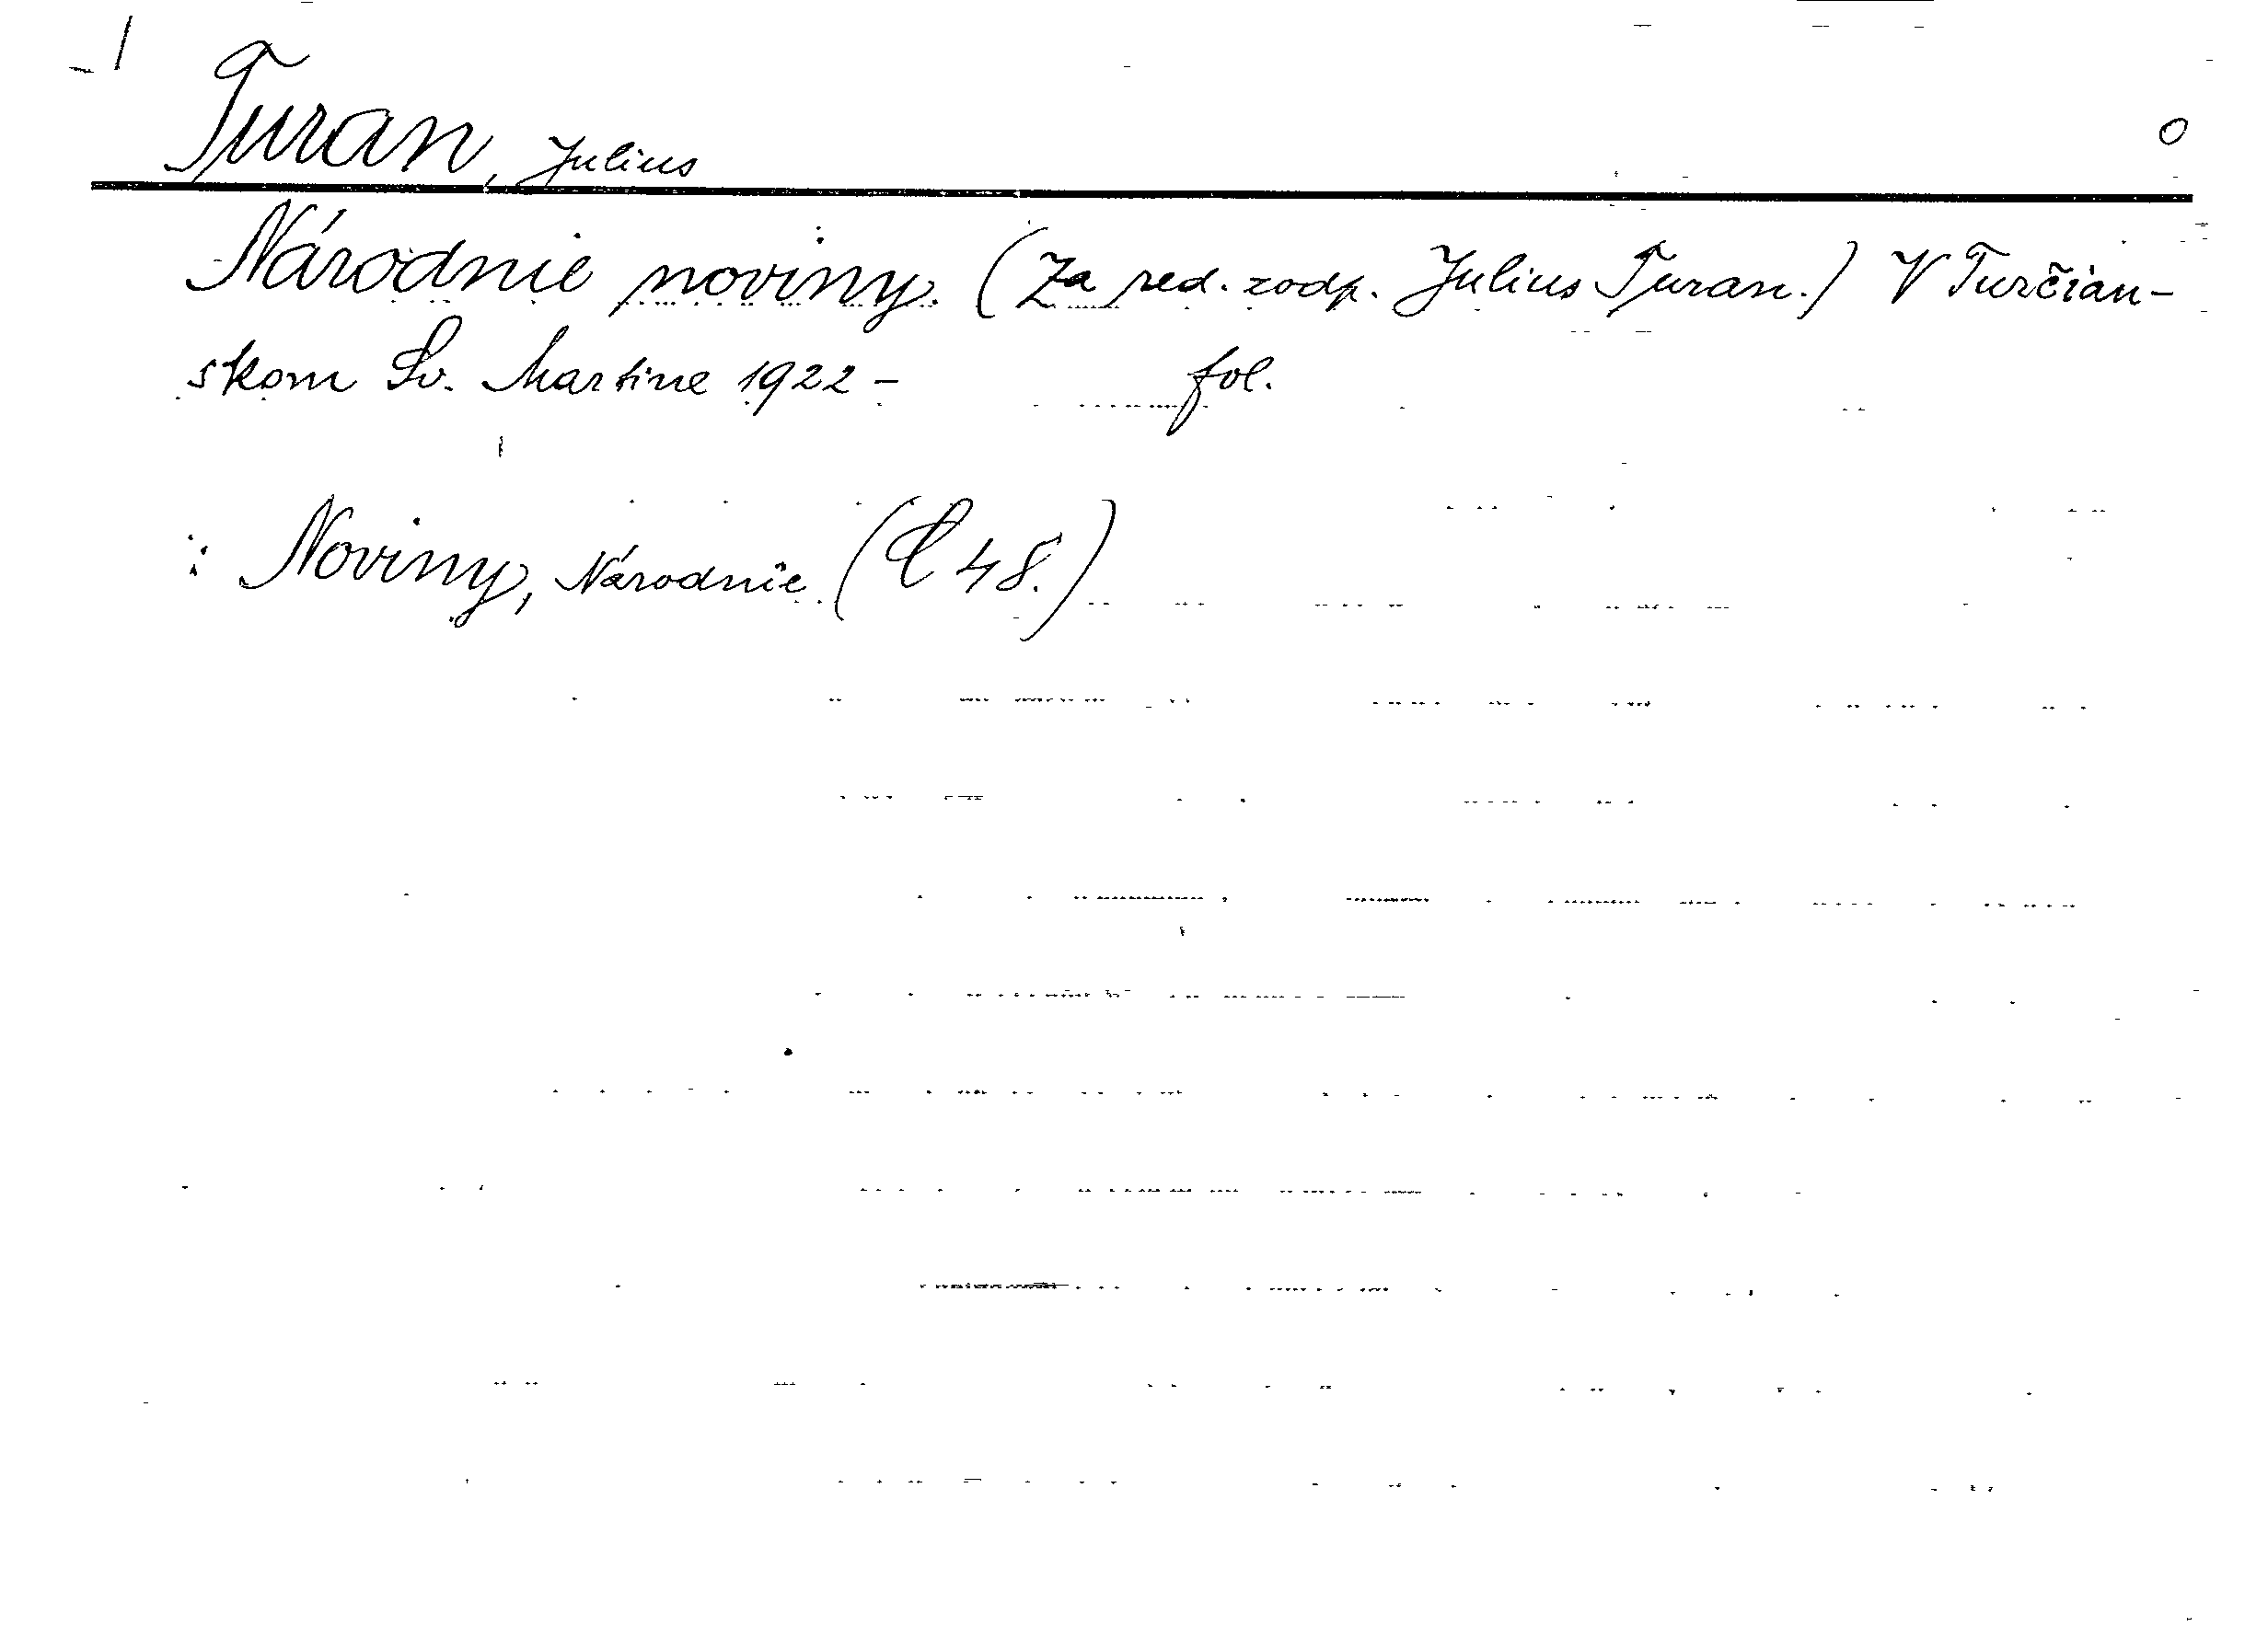 Turan, Julius
Národnie noviny. (Za red. zodp. Julius Turan.) V Turčian-
skom Sv. Martine 1922 - fol.
: Noviny, Národnie (C 48.)